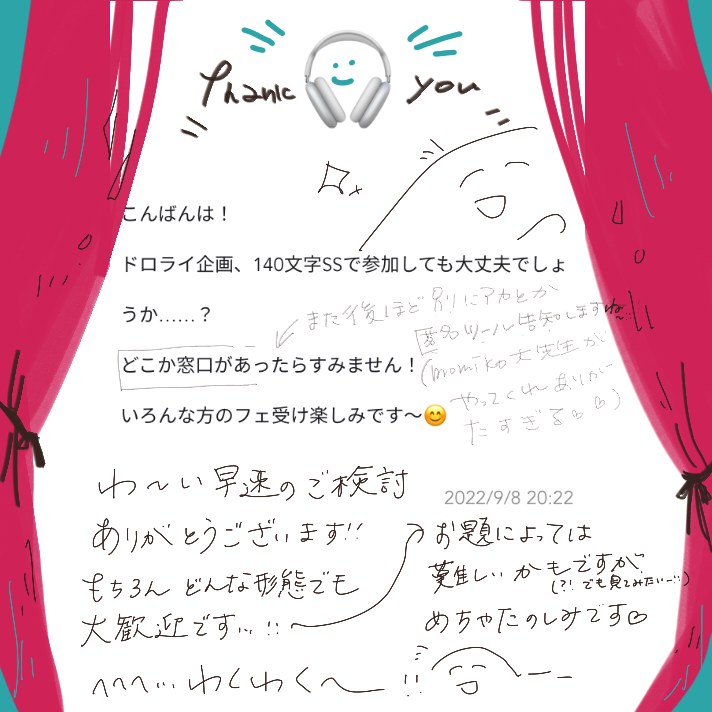 Thank you
こんばんは！
ドロライ企画、140文字SSで参加しても大丈夫でしょ
うか……？
また後ほど別にアカとか
匿名ツール告知しますね〜…
どこか窓口があったらすみません！
(momiko大先生が
やってくれありが
たすぎる♡♡)
いろんな方のフェ受け楽しみです〜😊
わ〜い早速のご検討
ありがとうございます!!
もちろんどんな形態でも
大歓迎です…!!
2022/9/8 20:22
お題によっては
難しいかもですが
(?!でも見てみたい…)
めちゃたのしみです♡
へへへ…わくわく〜!!